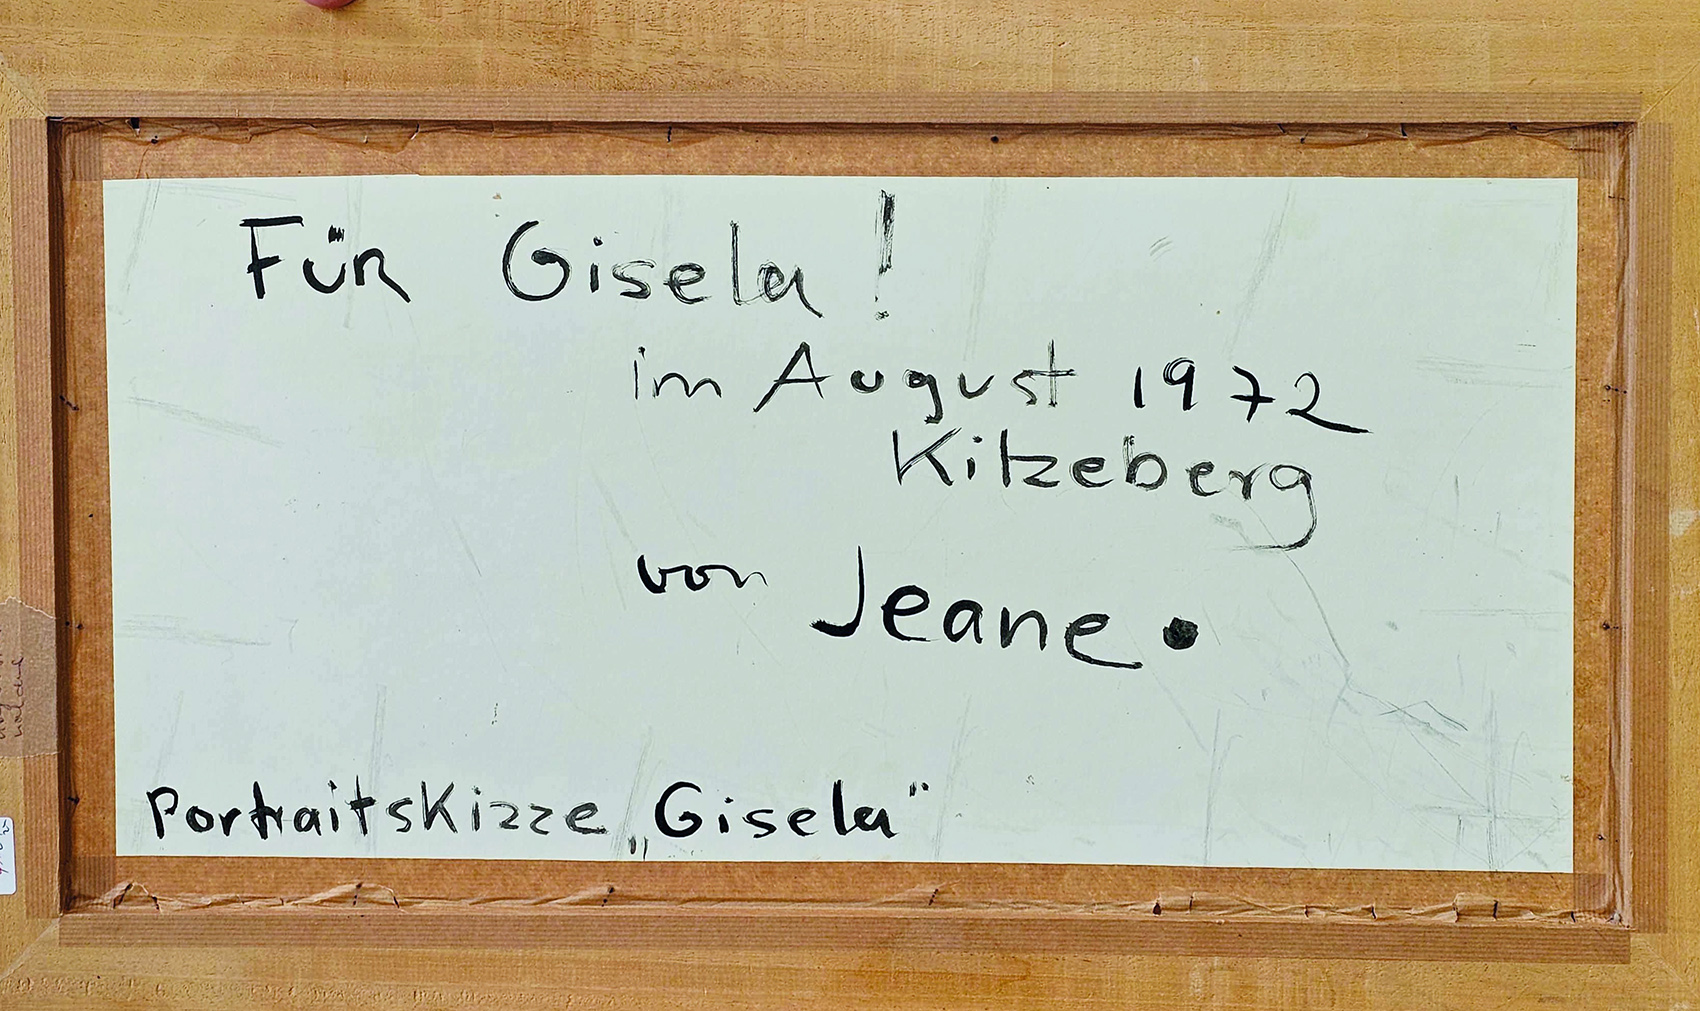 Für Gisela!
im August 1972
Kitzeberg
von Jeane.
Portraitskizze „Gisela"